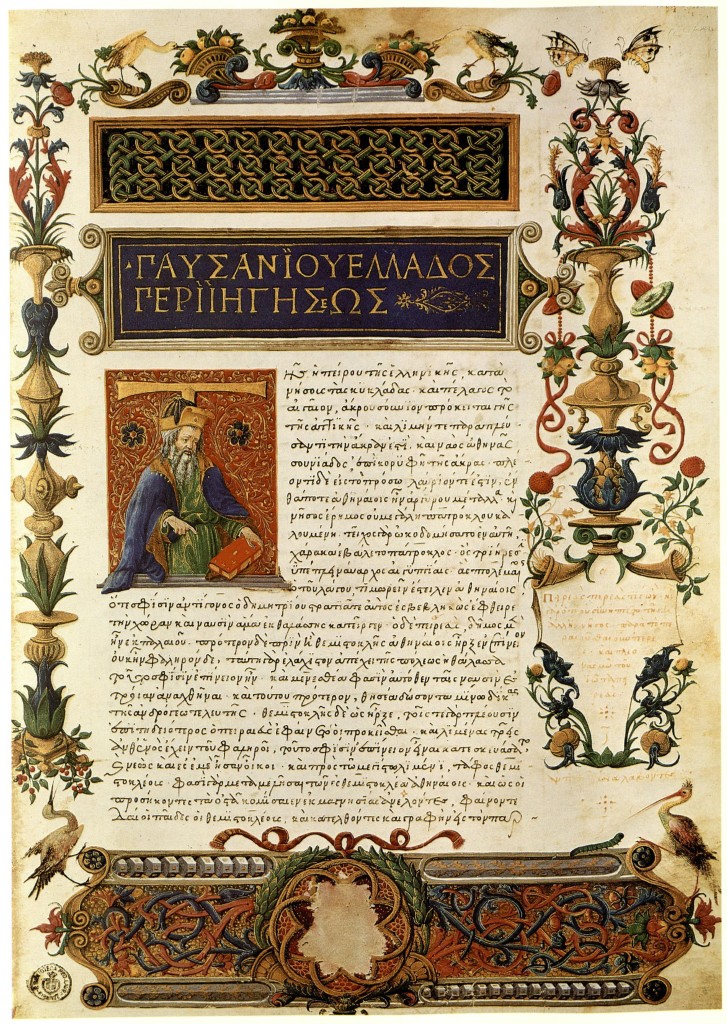 ·ΠΑΥΣΑΝΪΟΥ ΕΛΛΑΔΟΣ
ΠΕΡΙΪΗΓΗΣΕΩΣ
Τῆς ἠπείρου τῆς ἑλληνικῆς, κατὰ
νήσους τὰς κυκλάδας· καὶ πέλαγος τὸ
αἰγαῖον, ἄκρου σούνιον πρόκειται γῆς
τῆς ἀττικῆς· καὶ λιμήν τε παραπλεύ
σαντι τὴν ἄκραν ἐστὶ, καὶ ναὸς ἀθηνᾶς
σουνιάδος ἐπὶ κορυφῇ τῆς ἄκρας· πλέ
οντι δὲ εἰς τὸ πρόσω λαύριόν τέ ἐστιν, ἔν
θα ποτὲ ἀθηναίοις ἦν ἀργύρου μέταλλα κ
νῆσος ἔρημος οὐ μεγάλη πατρόκλου κα
λουμένη· τεῖχος ᾠκοδομήσατο ἐν αὐτῇ
χάρακα ἐβάλετο πάτροκλος· ὃς τριήρεσι
ὑπέπλει ναύαρχος αἰγυπτίαις· ἃς πτολεμαῖος
ὁ τοῦ λάγου τιμωρεῖν ἔστειλεν ἀθηναίοις
ὅτε σφίσιν ἀντίγονος ὁ δημητρίου στρατιᾷ τε αὐτὸς ἐσβεβληκὼς ἔφθειρε
τὴν χώραν καὶ ναυσὶν ἅμα ἐκ θαλάσσης κατεῖργεν· ὁ δὲ πειραιεὺς δῆμος μὲν
ἦν ἐκ παλαιοῦ· πρότερον δὲ πρὶν ἢ θεμιστοκλῆς ἀθηναίοις ἦρξεν ἐπίνειον
οὐκ ἦν φαληρὸν δέ, ταύτῃ γὰρ ἐλάχιστον ἀπέχει τῆς πόλεως ἡ θάλασσα
τοῦτο σφίσιν ἐπίνειον ἦν· καὶ μενεσθέα φασὶν αὐτόθεν ταῖς ναυσὶν ἐς
τροίαν ἀναχθῆναι· καὶ τούτου πρότερον, θησέα δώσοντα μίνωϊ δίκας
τῆς ἀνδρόγεω τελευτῆς· θεμιστοκλῆς δὲ ὡς ἦρξε, τοῖς τε γὰρ πλέουσιν
ἐπιτηδειότερος ὁ πειραιεὺς ἐφαίνετό οἱ προκεῖσθαι· καὶ λιμένας τρεῖς
ἀνθ' ἑνὸς ἔχειν τοῦ φαληροῖ, τοῦτο σφίσιν ἐπίνειον εἶναι κατεσκευάσατο
νεὼς καὶ ἐς ἐμὲ ἦσαν οἶκοι· καὶ πρὸς τῷ μεγίστῳ λιμένι, τάφος θεμι
στοκλέους· φασὶ γὰρ μεταμελῆσαι τῶν ἐς θεμιστοκλέα ἀθηναίοις· καὶ ὡς οἱ
προσήκοντες τὰ ὀστᾶ κομίσαιεν ἐκ μαγνησίας ἀνελόντες, φαίνοντ
αι οἱ παῖδες οἱ θεμιστοκλέους, καὶ κατελθόντες καὶ γραφὴν ἐς τὸν πα